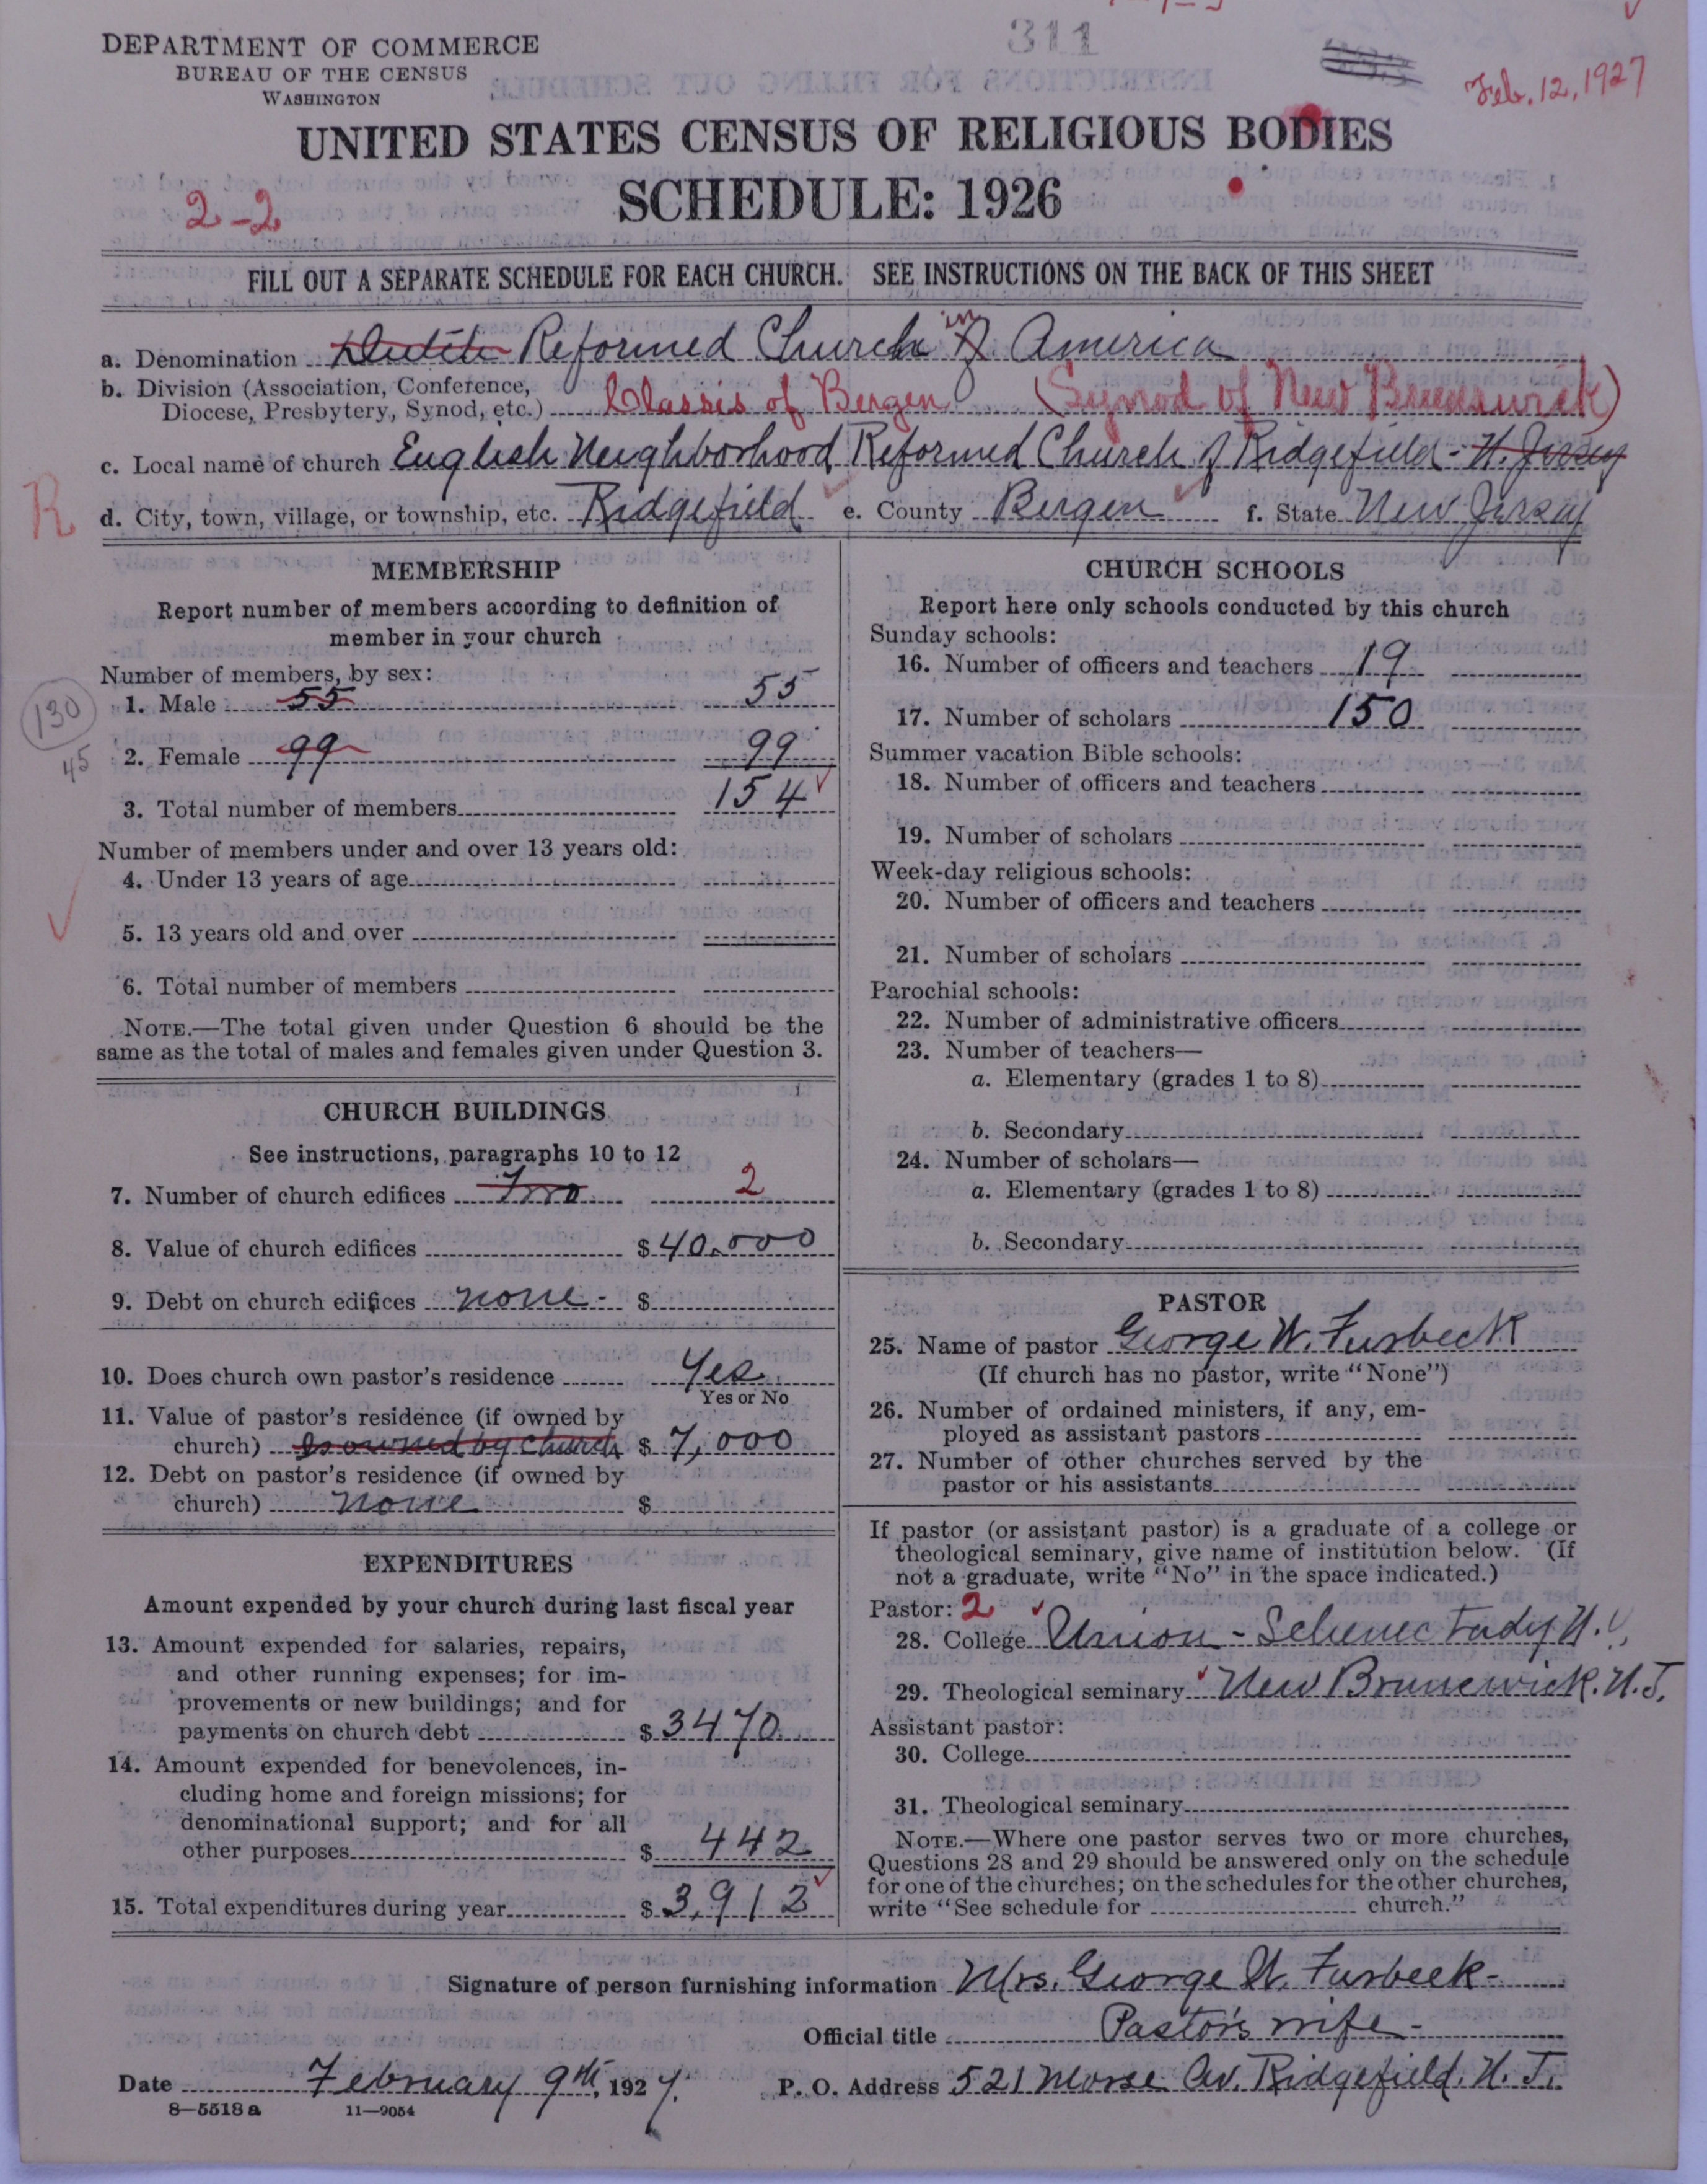 311
Feb. 12, 1927
DEPARTMENT OF COMMERCE
BUREAU OF THE CENSUS
WASHINGTON
UNITED STATES CENSUS OF RELIGIOUS BODIES
SCHEDULE: 1926
2-2
FILL OUT A SEPARATE SCHEDULE FOR EACH CHURCH. SEE INSTRUCTIONS ON THE BACK OF THIS SHEET
a. Denomination Dutch Reformed Church of in America
b. Division (Association, Conference,
Diocese, Presbytery, Synod, etc.) Classis of Bergen (Synod of New Brunswick)
c. Local name of church English Neighborhood Reformed Church of Ridgefield - N. Jersey
R
d. City, town, village, or township, etc. Ridgefield e. County Bergen f. State New Jersey
MEMBERSHIP
Report number of members according to definition of
member in your church
Number of members, by sex:
130
1. Male 55 55
45
2. Female 99 99
3. Total number of members 154
Number of members under and over 13 years old:
4. Under 13 years of age
5. 13 years old and over
6. Total number of members
NOTE.—The total given under Question 6 should be the
same as the total of males and females given under Question 3.
CHURCH BUILDINGS
See instructions, paragraphs 10 to 12
7. Number of church edifices Two 2
8. Value of church edifices $ 40,000
9. Debt on church edifices none - $
10. Does church own pastor's residence Yes
Yes or No
11. Value of pastor's residence (if owned by
church) Is owned by church $ 7,000
12. Debt on pastor's residence (if owned by
church) none $
EXPENDITURES
Amount expended by your church during last fiscal year
13. Amount expended for salaries, repairs,
and other running expenses; for im-
provements or new buildings; and for
payments on church debt $ 3470
14. Amount expended for benevolences, in-
cluding home and foreign missions; for
denominational support; and for all
other purposes $ 442
15. Total expenditures during year $ 3,912
CHURCH SCHOOLS
Report here only schools conducted by this church
Sunday schools:
16. Number of officers and teachers 19
17. Number of scholars 150
Summer vacation Bible schools:
18. Number of officers and teachers
19. Number of scholars
Week-day religious schools:
20. Number of officers and teachers
21. Number of scholars
Parochial schools:
22. Number of administrative officers
23. Number of teachers—
a. Elementary (grades 1 to 8)
b. Secondary
24. Number of scholars—
a. Elementary (grades 1 to 8)
b. Secondary
PASTOR
25. Name of pastor George W. Furbeck
(If church has no pastor, write "None")
26. Number of ordained ministers, if any, em-
ployed as assistant pastors
27. Number of other churches served by the
pastor or his assistants
If pastor (or assistant pastor) is a graduate of a college or
theological seminary, give name of institution below. (If
not a graduate, write "No" in the space indicated.)
Pastor: 2
28. College Union - Schenectady N.Y.
29. Theological seminary New Brunswick. N.J.
Assistant pastor:
30. College
31. Theological seminary
NOTE.—Where one pastor serves two or more churches,
Questions 28 and 29 should be answered only on the schedule
for one of the churches; on the schedules for the other churches,
write "See schedule for church."
Signature of person furnishing information Mrs. George W. Furbeck -
Official title Pastor's wife -
Date February 9th, 1927. P. O. Address 521 Morse Av. Ridgefield. N. J.
8—5518 a 11—9054